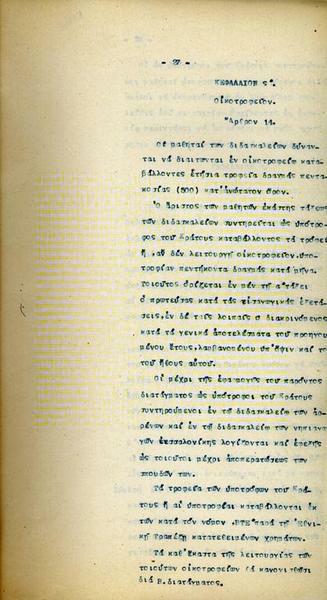 - 27 -
ΚΕΦΑΛΑΙΟΝ ς'.
Οἰκοτροφεῖον.
Ἄρθρον 14.
Οἱ μαθηταί τῶν διδασκαλείων δύναν-
ται νά διαιτῶνται ἐν οἰκοτροφείῳ κατα-
βάλλοντες ἐτήσια τροφεῖα δραχμάς πεντα-
κοσίας (500) κατ'ἀνώτατον ὅρον.
Ὁ ἄριστος τῶν μαθητῶν ἑκάστης τάξεως
τῶν διδασκαλείων συντηρεῖται ὡς ὑπότρο-
φος τοῦ Κράτους καταβάλλοντος τά τροφεῖ
ἤ, ἄν δέν λειτουργῇ οἰκοτροφεῖον, ὑπο-
τροφίαν πεντήκοντα δραχμάς κατά μῆνα.
Τοιοῦτος ὁρίζεται ἐν μέν τῇ α' τάξει
ὁ πρωτεύσας κατά τάς εἰσαγωγικάς ἐξετά-
σεις, ἐν δέ ταῖς λοιπαῖς ὁ διακρινόμενος
κατά τά γενικά ἀποτελέσματα τοῦ προηγου
μένου ἔτους, λαμβανομένου ὑπ'ὄψιν καί το
τοῦ ἤθους αὐτοῦ.
Οἱ μέχρι τῆς ἐφαρμογῆς τοῦ παρόντος
διατάγματος ὡς ὑπότροφοι τοῦ Κράτους
συντηρούμενοι ἐν τῷ διδασκαλείῳ τῶν ἀρ-
ρένων καί ἐν τῷ διδασκαλείῳ τῶν νηπιαγω
γῶν Θεσσαλονίκης λογίζονται καί ἐφεξῆς
ὡς τοιοῦτοι μέχρι ἀποπερατώσεως τῶν
σπουδῶν των.
Τά τροφεῖα τῶν ὑποτρόφων τοῦ Κρά-
τους ἤ αἱ ὑποτροφίαι καταβάλλονται ἐκ
τῶν κατά τόν νόμον ,ΒΤΕ' παρά τῇ Ἐθνι-
κῇ Τραπέζῃ κατατεθειμένων χρημάτων.
Τά καθ'ἕκαστα τῆς λειτουργίας τῶν
τοιούτων οἰκοτροφείων θά κανονισθῶσι
διά Β. διατάγματος.